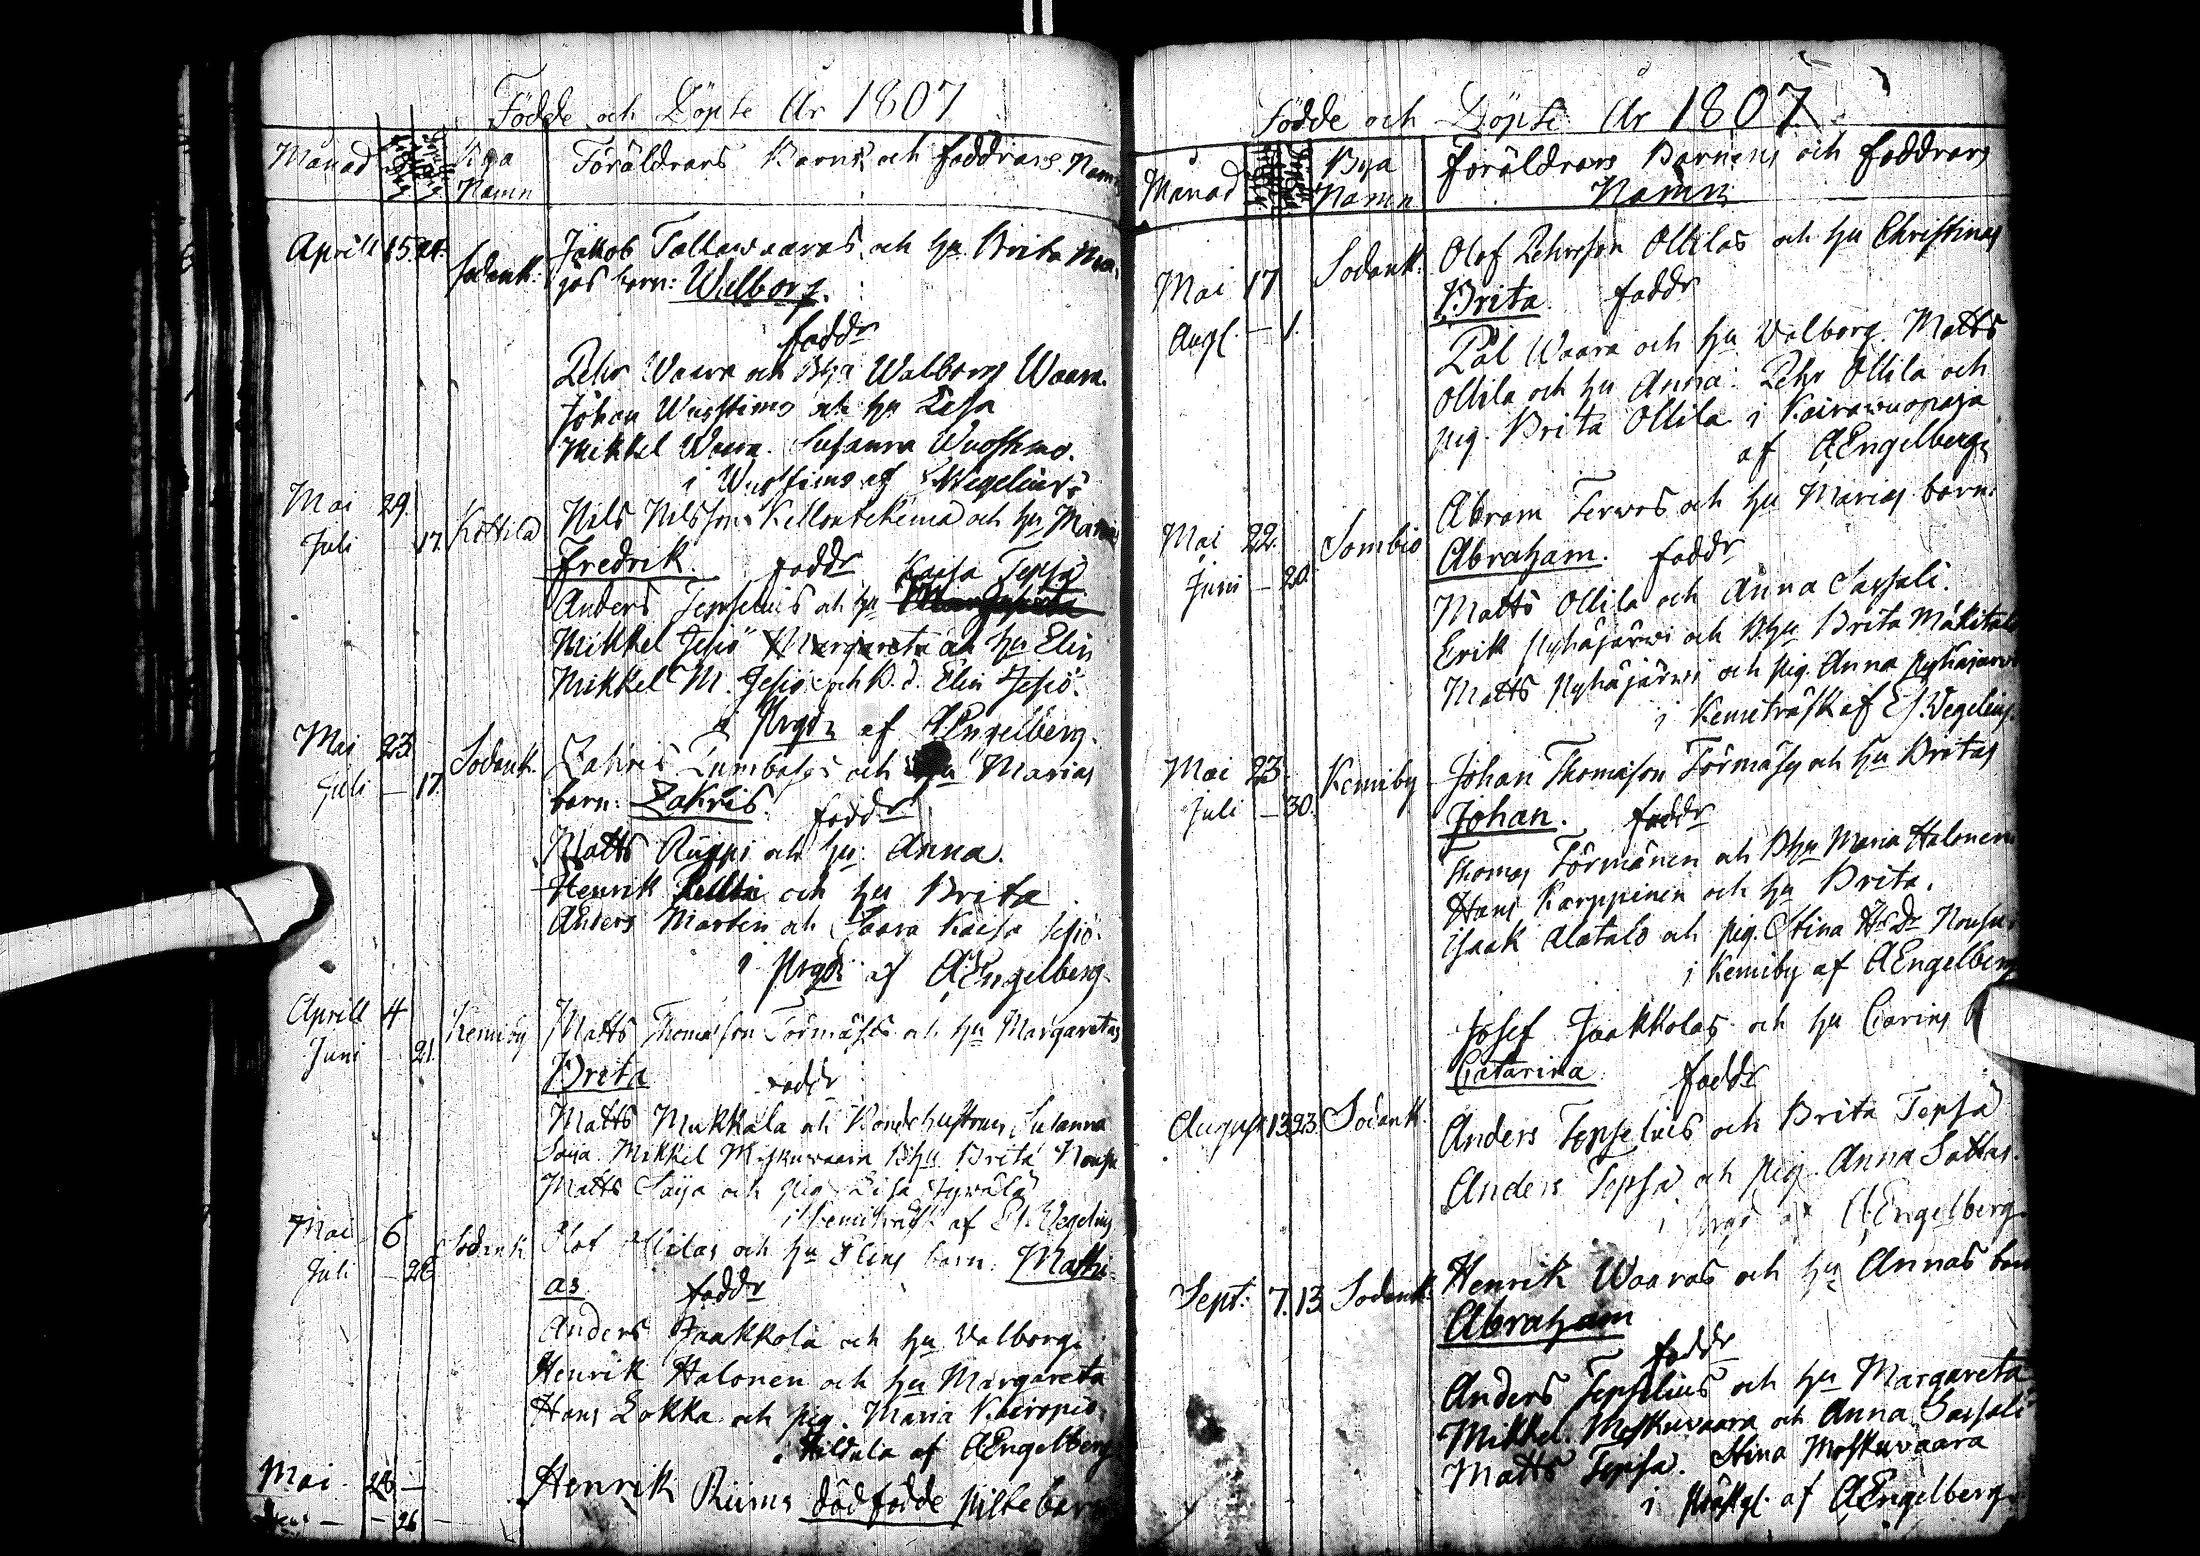 Födde och Döpte År 1807
Månad Bya Namn Föräldrars Barns och faddrars Namn
Aprill 15. 21. Sodank: Jakob Tallawaaras och hu Brita Ma-
jas barn: Walborg.
faddr
Pehr Waara och Bhu Walborg Waara.
Johan Wuostimo och hu Lisa
Mikkel Waara. Susanna Wuostimo.
i Wuostimo af Wegelius
Mai 29. Kittilä Nils Nilsson Kellontekemä och hu Marias
Juli 17. Fredrik. faddr Kaisa Tepsa
Anders Tepselius och hu Margareta
Mikkel Jesiö Margareta och hu Elin
Mikkel M. Jesiö och B. d. Elin Jesiö.
i Prgdn af AEngelberg.
Mai 23 Sodank. Zakris Kumbalas och hu Marias
Juli — 17. barn: Zakris. faddr
Matts Ruppi och hu Anna.
Henrik och hu Brita
Anders Martin och Saara Kaisa Jesiö.
i Prgdn af AEngelberg.
Aprill 4 Kemiby Matts Thomasson Törmäses och hu Margaretas
Juni — 21. Brita faddr
Matts Mukkala och Bondehustrun Susanna
Saija. Mikkel Moskuwaara Bhu Brita
Matts Saija och pig. Lisa
i Kemiträsk af Es. Wegelius
Mai 6 Sodank Olof Ollilas och hu Elins barn. Mathi-
Juli — 26 as faddr
Anders Jaakkola och hu Valborg.
Henrik Halonen och hu Margareta
Hans Lokka och pig. Maria
i af AEngelberg
Mai 26 — Henrik dödfödde piltebarn
— 26

Födde och Döpte År 1807
Månad Bya Namn Föräldrars Barnens och faddrars
Namn
Mai 17 Sodank. Olof Pehrsson Ollilas och hu Christinas
Augs. — 1. Brita faddr
Pål Waara och hu Valborg. Matts
Ollila och hu Anna. Pehr Ollila och
pig. Brita Ollila i Kairawuopaja
af AEngelberg
Mai 22. Sombio Abram Terwos och hu Marias barn:
Juni — 20. Abraham. faddr
Matts Ollila och Anna Sassali.
Erik Pyhäjärwi och Bhu Brita Mäkitalo
Matts Pyhäjärwi och pig. Anna Pyhäjärwi
i Kemiträsk af Es. Wegelius.
Mai 23. Kemiby Johan Thomasson Törmäses och hu Britas
Juli — 30. Johan. faddr
Thomas Törmänen och Bhu Maria Halonen
Hans Karppinen och hu Brita.
Isaak Alatalo och pig. Stina
i Kemiby af AEngelberg
Josef Jaakkolas och hu Carins
Catarina faddr
August 13. 23. Sodank. Anders Tepselius och Brita Tepsa
Anders Tepsa och pig. Anna Sattas.
i af AEngelberg.
Sept. 7. 13. Sodank. Henrik Waaras och hu Annas barn
Abraham
faddr
Anders Tepselius och hu Margareta
Mikkel. Moskuwaara och Anna Sassali
Matts Tepsa. Stina Moskuwaara
i af AEngelberg.